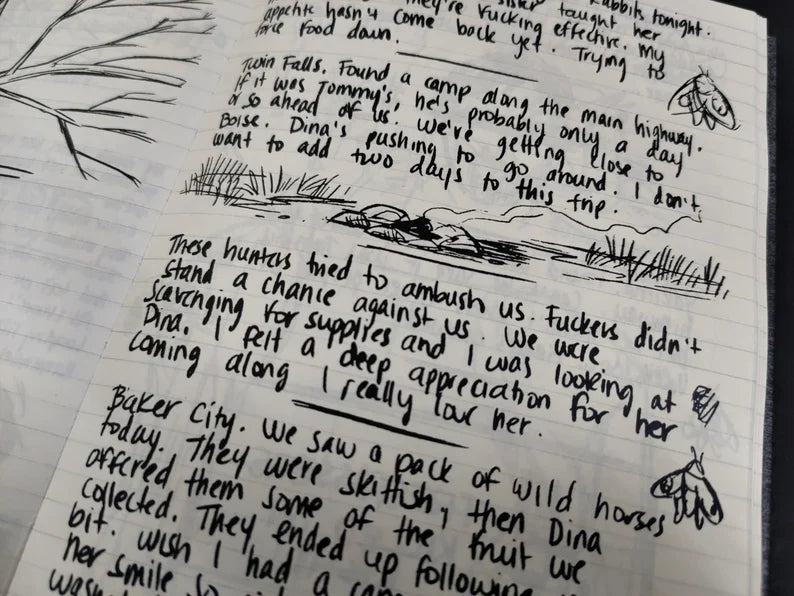 sister taught her
Rabbits tonight.
They're fucking effective. My
appetite hasn't come back yet. Trying to
force food down.
Twin Falls. Found a camp along the main highway.
If it was Tommy's, he's probably only a day
or so ahead of us. We're getting close to
Boise. Dina's pushing to go around. I don't
want to add two days to this trip.
These hunters tried to ambush us. Fuckers didn't
stand a chance against us. We were
scavenging for supplies and I was looking at
Dina. I felt a deep appreciation for her
coming along I really love her.
Baker City. We saw a pack of wild horses
today. They were skittish, then Dina
offered them some of the fruit we
collected. They ended up following
bit. Wish I had a
her smile so